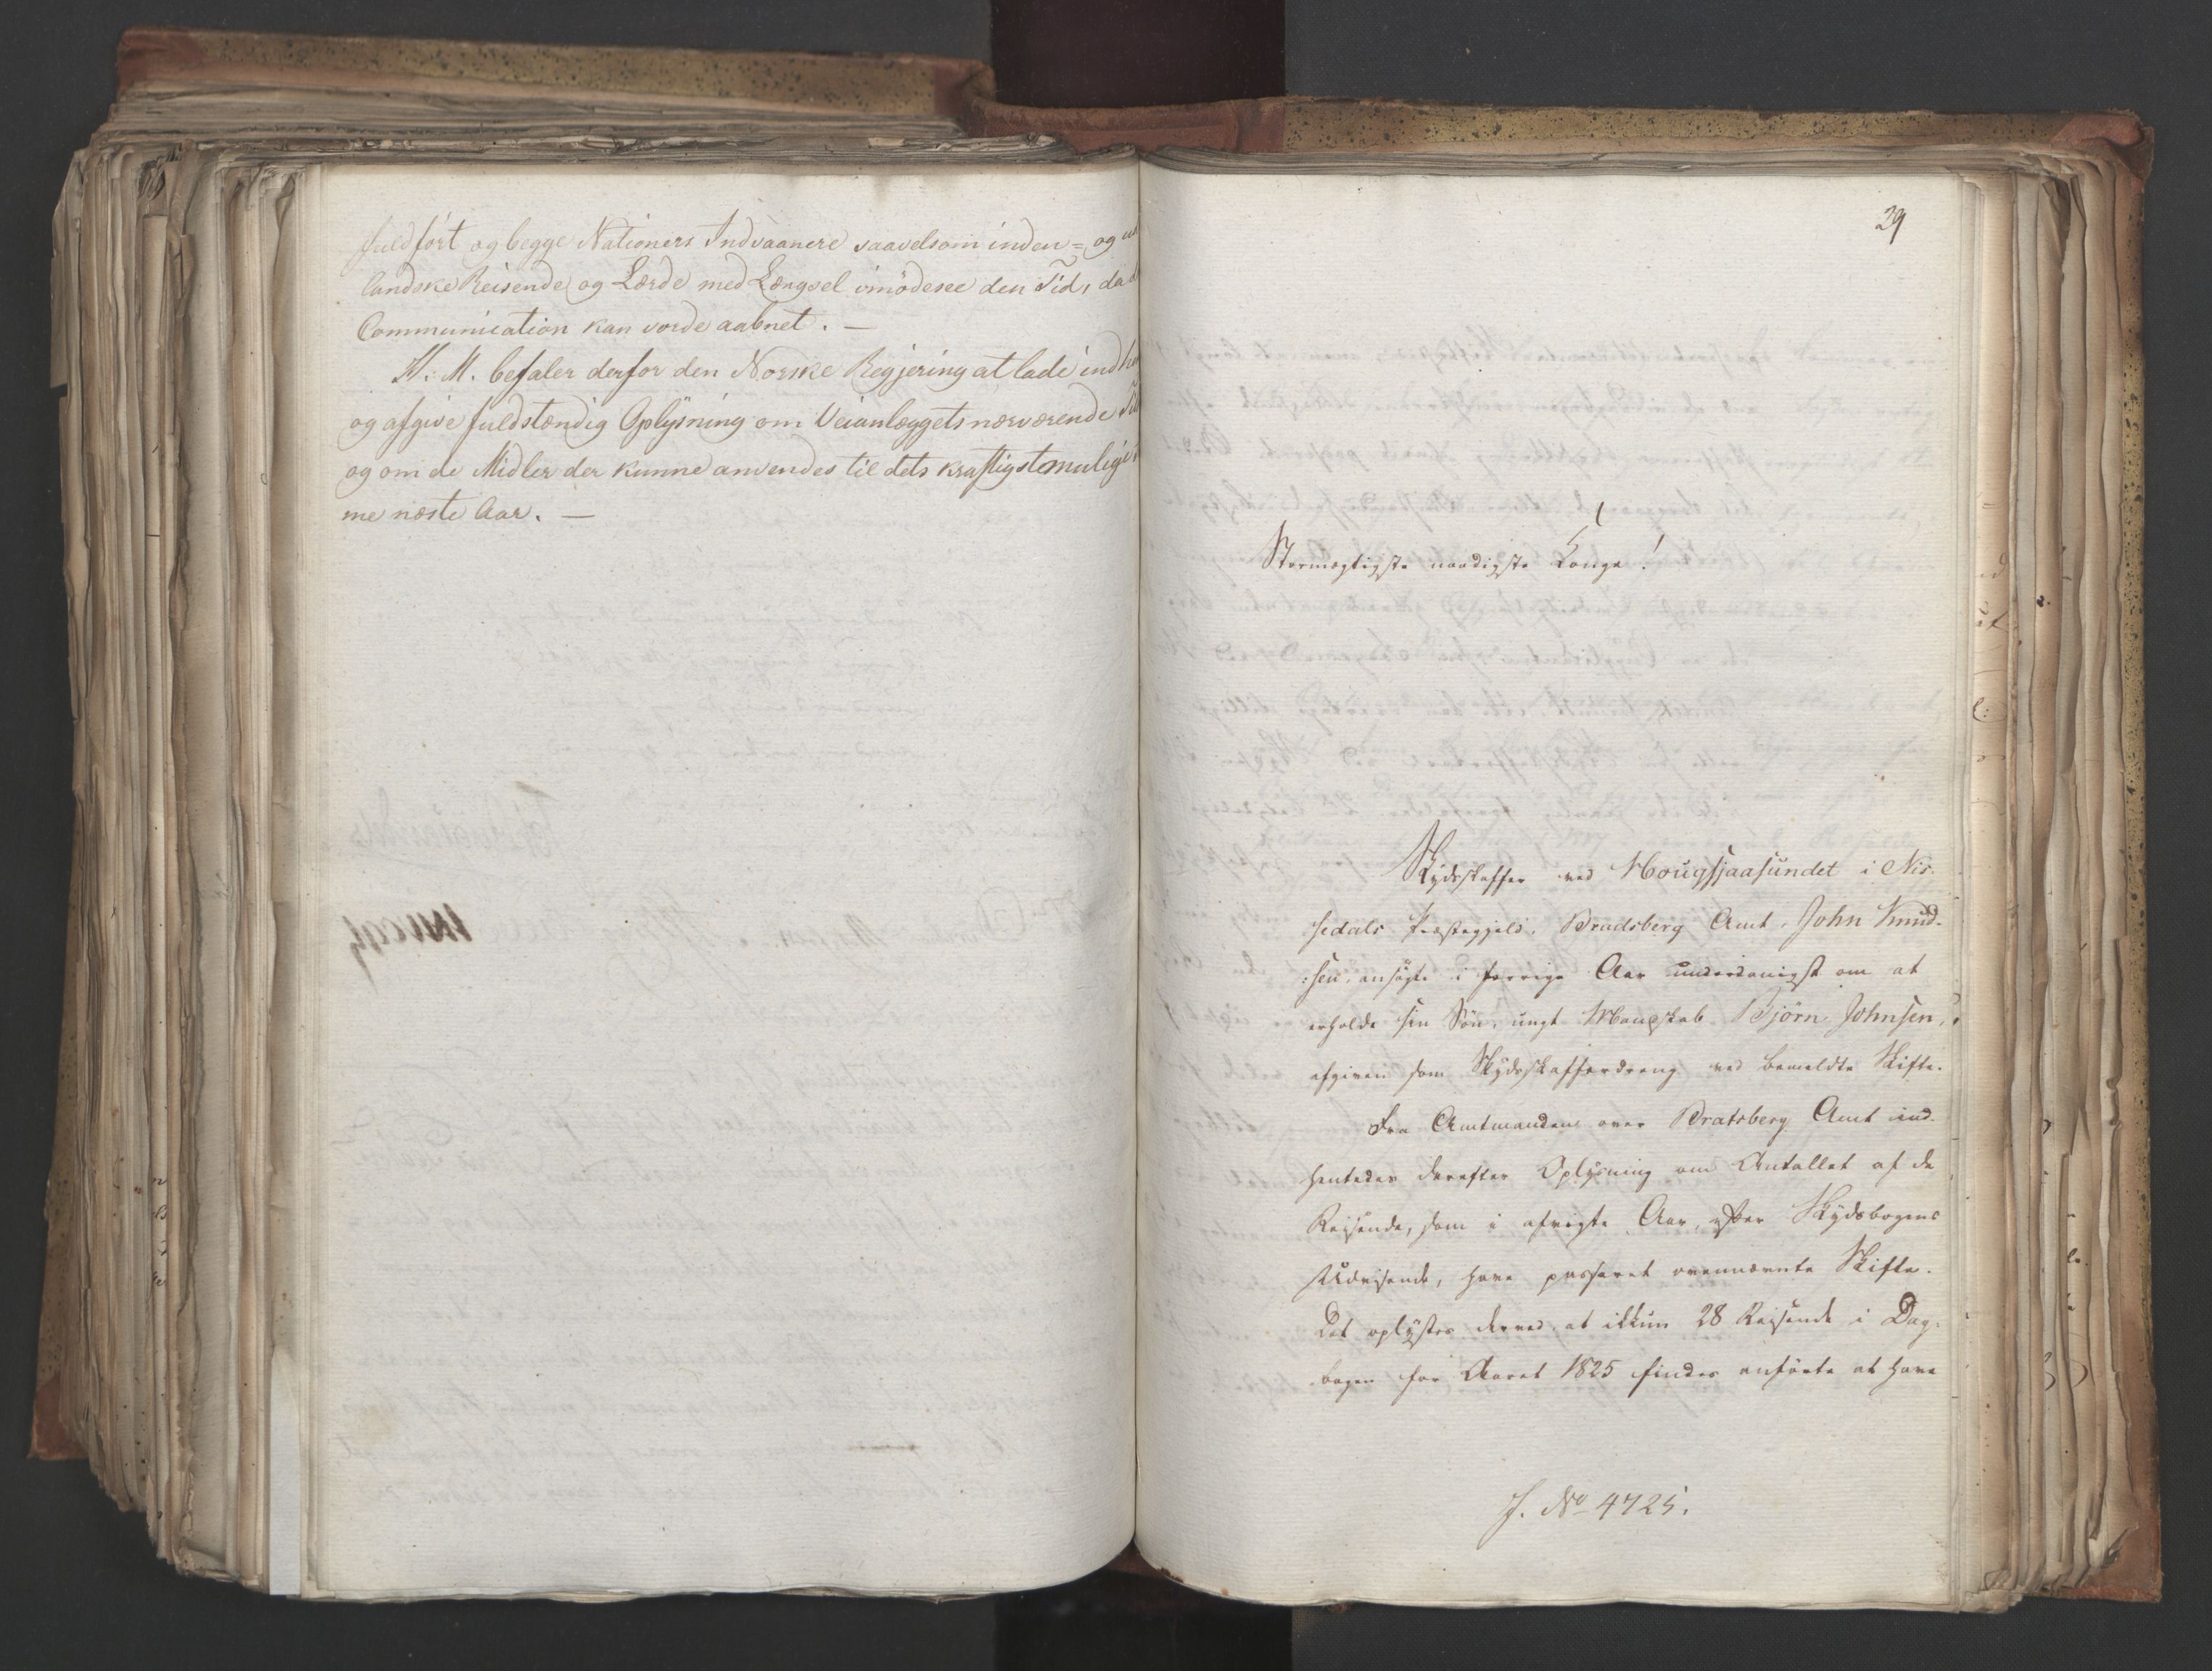 fuldfört og begge Nationers Indvaanere saavelsom inden- og
landske Reisende og Lærde med Længsel imödesee den Tid, da
Communication kan vorde aabnet. —
H: M. befaler derfor den Norske Regjering at lade
og afgive fuldstændig Oplysning om Veianlæggets nærværende
og om de Midler der kunne anvendes til dets kraftigste
me næste Aar. —
29
Stormægtigste naadigste Konge!
Skydsskaffer ved Hougsjaasundet i Nis-
sedals Præstegjeld, Bradsberg Amt, John Knud-
:sen, ansøgte i forrige Aar underdanigst om at
erholde sin Sön, ungt Mandskab Björn Johnsen,
afgiven som Skydsskafferdreng ved bemeldte Skifte.
Fra Amtmanden over Bratsberg Amt ind-
hentedes derefter Oplysning om Antallet af de
Reisende, som i afvigte Aar, efter Skydsbogens
Udvisende, have passeret ovennævnte Skifte.
Det oplystes derved, at ikkun 28 Reisende i Dag-
bogen for Aaret 1825 findes anförte at have
J. No 4725.